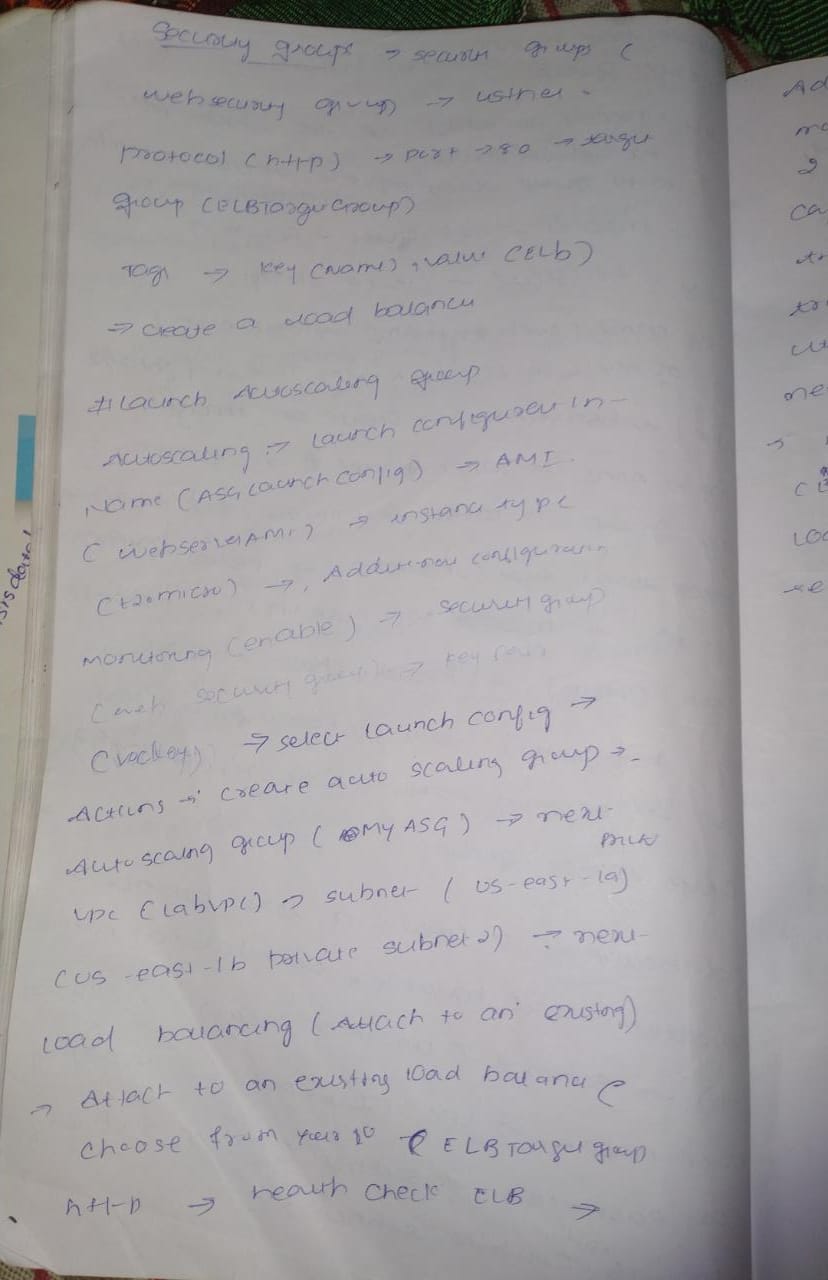 Security groups → security groups (
websecurity group) → listner -
protocol (http) → port → 80 → target
group (ELBTargetGroup)
Tags → key (name), value (ELb)
→ create a load balancer
# launch Autoscaling group
Autoscaling → launch configuration -
Name (ASG Launch config) → AMI
(webserverAMI) → instance type
(t2.micro) → Additional configuration
monitoring (enable) → security group
(web security group) → key pair
(vockey) → select launch config →
Actions → create auto scaling group →
Autoscaling group (MyASG) → next
vpc (labvpc) → subnet (us-east-1a)
(us-east-1b private subnet 2) → next
load balancing (Attach to an existing)
→ Attach to an existing load balancer (
choose from your (ELBTarget group
http → health check ELB →
Ad
mo
2
ca
tr
ne
LOC